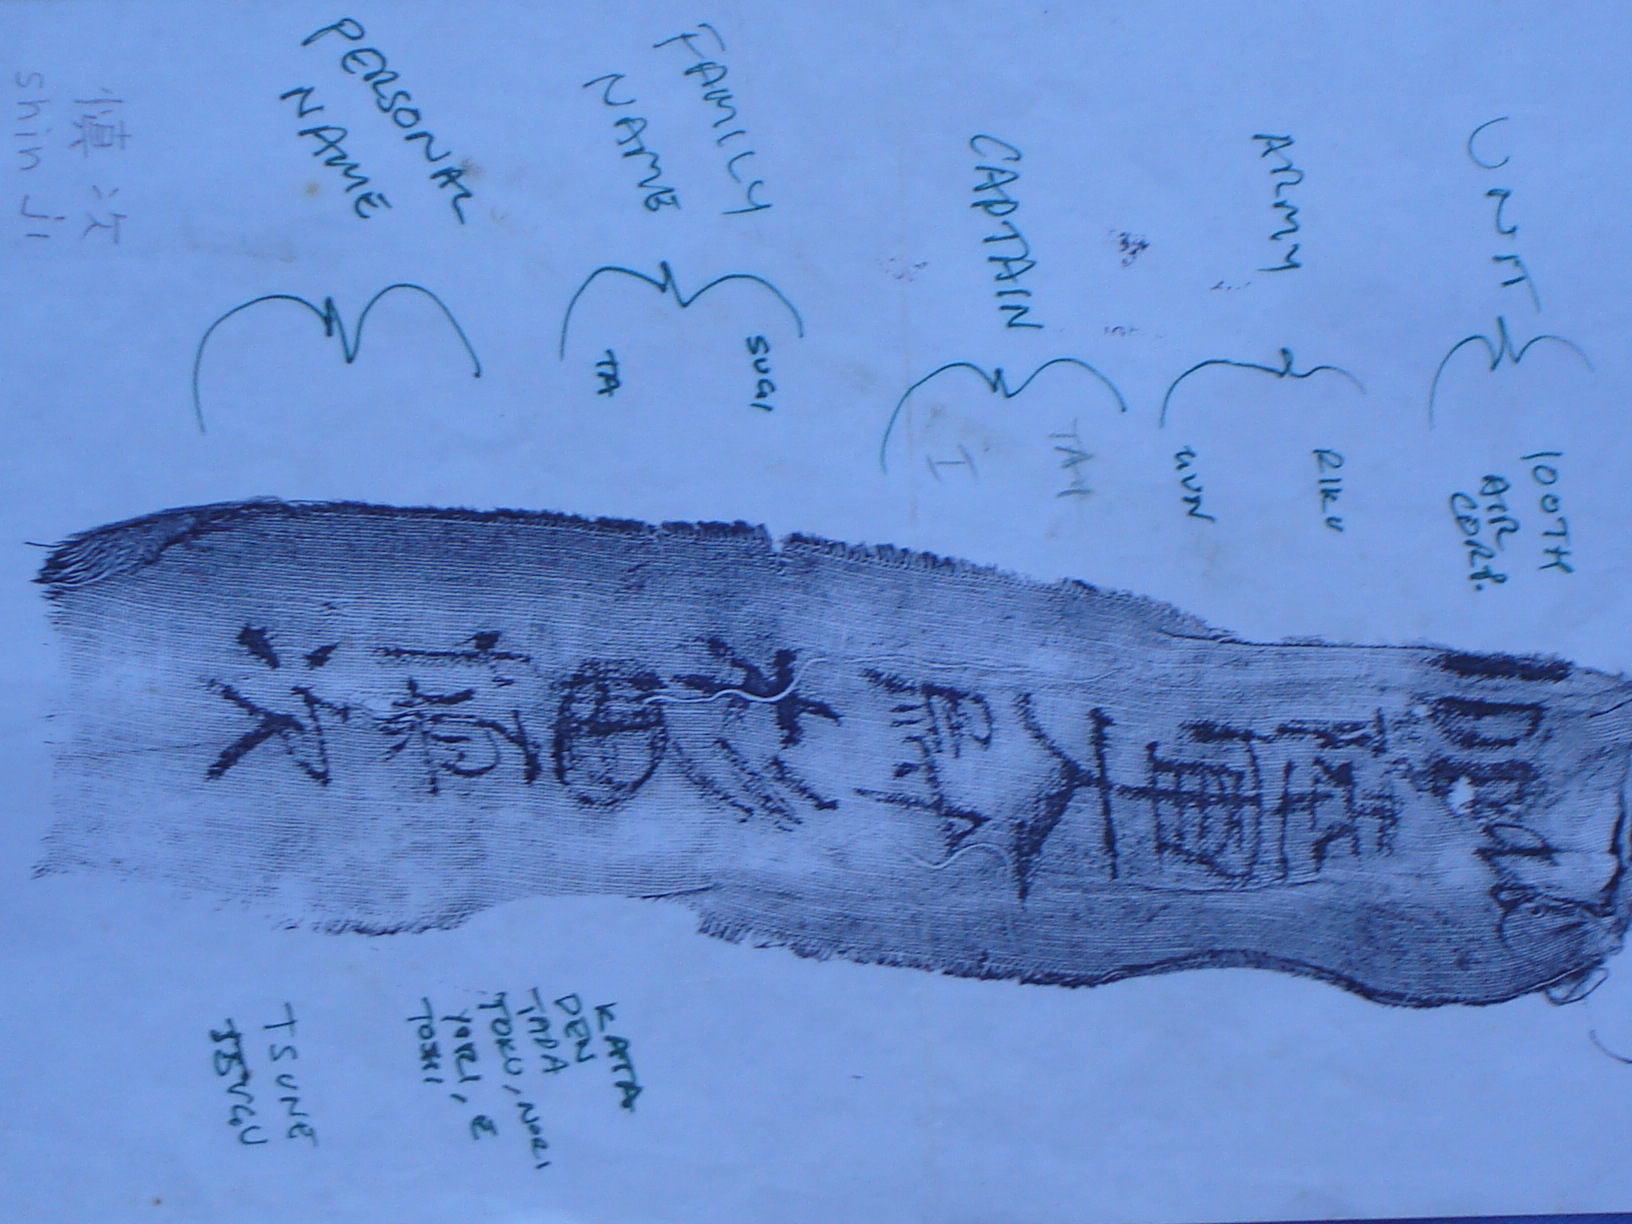 UNIT
100TH
AIR
CORP.
ARMY
RIKU
GUN
CAPTAIN
TAI
I
FAMILY
NAME
SUGI
TA
PERSONAL
NAME
陸軍大尉杉田次
KATA
DEN
TADA
TOKU, NORI
YORI, E
TOSHI
TSUNE
TSUGU
慎次
shin ji